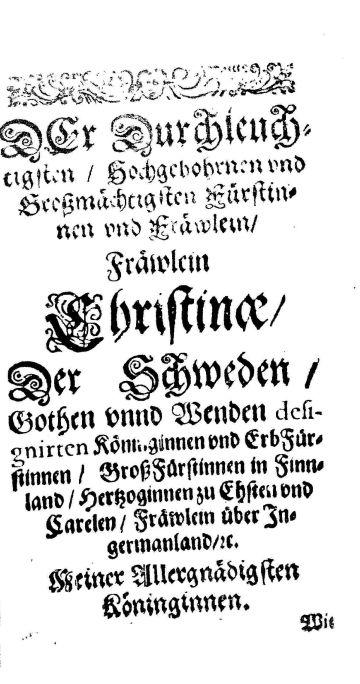 DEr Durchleuch-
tigsten / Hochgebohrnen vnd
Großmächtigsten Fürstin-
nen vnd Fräwlein/
Fräwlein
Christinæ/
Der Schweden /
Gothen vnnd Wenden desi-
gnirten Königinnen vnd ErbFür-
stinnen / GroßFürstinnen in Finn-
land / Hertzoginnen zu Ehsten vnd
Carelen / Fräwlein über In-
germanland/ꝛc.
Meiner Allergnädigsten
Köninginnen.
Wie